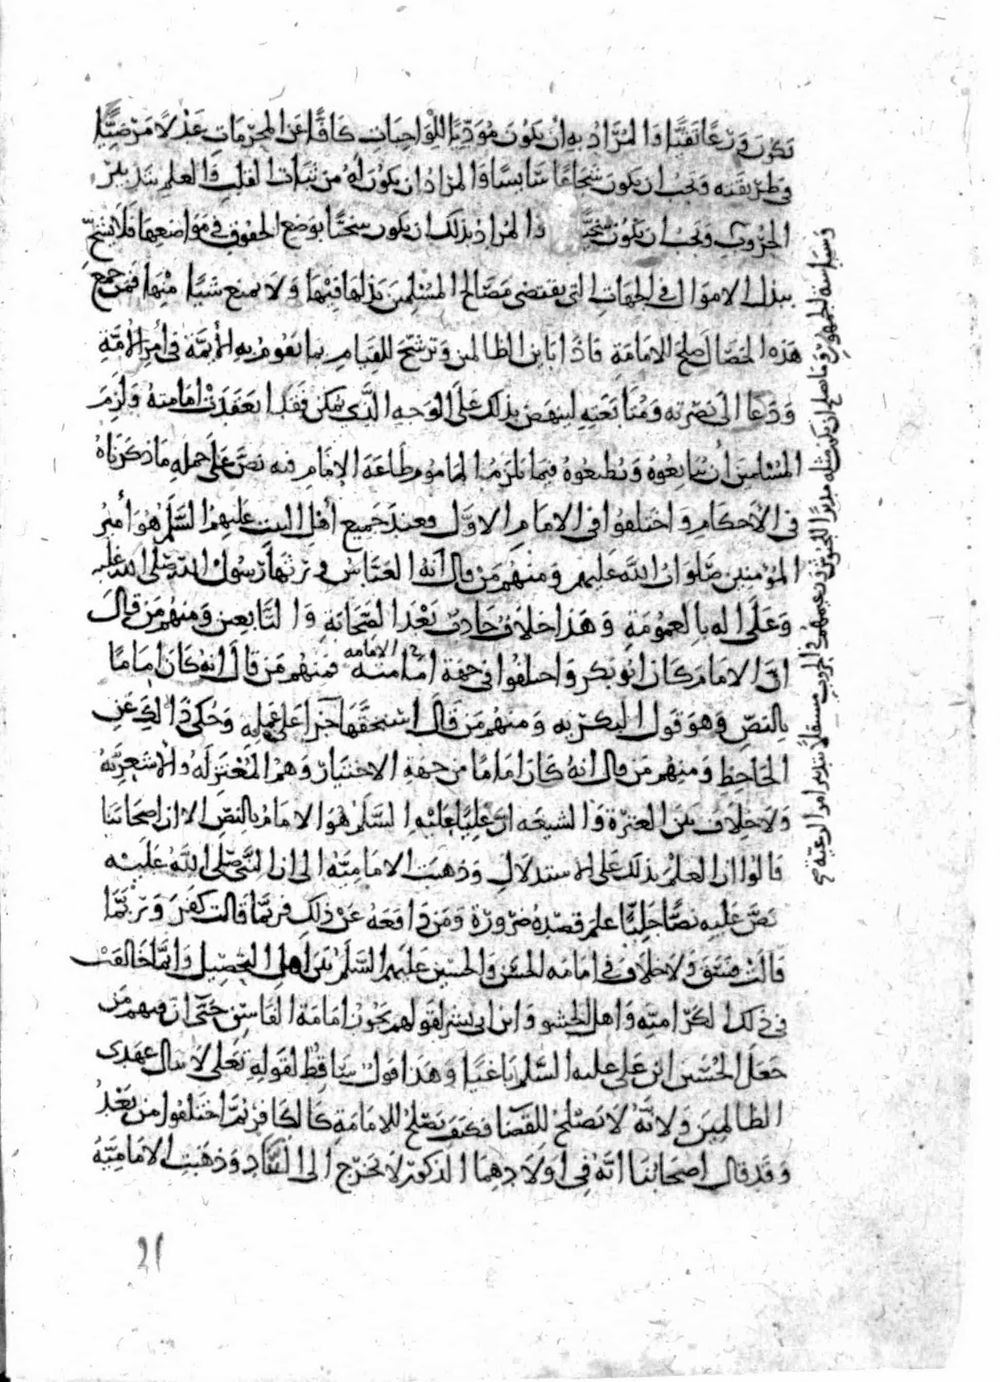 يكون ورعا تقيا والمراد به ان يكون مؤديا للواجبات كافا عن المحرمات عدلا مرضيا
في طريقته ويجب ان يكون شجاعا سايسا والمراد ان يكون له من ثبات القلب والعلم بتدبير
الحروب ويجب ان يكون سخيا والمراد بذلك ان يكون سخيا بوضع الحقوق في مواضعها فلا يشح
ببذل الاموال في الجهات التي يقتضي مصالح المسلمين بذلها فيها ولا يمنع شيئا منها فمن جمع
هذه الخصال صلح للامامة فاذا باين الظالمين وترشح للقيام بما يقوم به الأيمة في أمر الأمة
ودعا الى نصرته ومتابعته لينهض بذلك على الوجه الذي يمكن فقد انعقدت امامته ولزم
المسلمين أن يتابعوه ويطيعوه فيما يلزم المأموم طاعة الإمام فيه نص على جملة ما ذكرناه
في الأحكام واختلفوا في الامام الاول فعند جميع أهل البيت عليهم السلم هو أمير
المؤمنين صلوات الله عليهم ومنهم من قال انه العباس ورثها رسول الله صلى الله عليه
وعلى اله بالعمومة وهذا خلاف حادث بعد الصحابة والتابعين ومنهم من قال
ان الامام كان ابو بكر واختلفوا في جهة امامته الامامه فمنهم من قال انه كان اماما
بالنص وهو قول البكرية ومنهم من قال استحقها جزا على عمله وحكي ذلك عن
الجاحظ ومنهم من قال انه كان اماما من جهة الاختيار وهم المعتزله والاشعرية
ولا خلاف بين العترة والشيعه ان عليا عليه السلم هو الامام بالنص الا ان اصحابنا
قالوا ان العلم بذلك على الاستدلال وذهبت الامامية الى ان النبي صلى الله عليه
نص عليه نصا جليا علم قصده ضرورة ومن دافعه عن ذلك فربما قالت كفر وربما
قالت فسق ولا خلاف في امامه الحسن والحسين عليهم السلم بين اهل التحصيل وانما خالفت
في ذلك الكرامية واهل الحشو وابن ابي بشر لقولهم بجواز امامة الفاسق حتى ان فيهم من
جعل الحسين ابن علي عليه السلم باغيا وهذا قول ساقط لقوله تعلى لا ينال عهدي
الظالمين ولانه لا يصلح للقضا فكيف يصلح للامامة كالكافر ثم اختلفوا من بعد
وقد قال اصحابنا انه في اولادهما الذكور لا تخرج الى وذهبت الامامية
وسياسة الجمهور ما صلح ان يكون مثله مدبرا للجيوش في الحروب مستقلا بتدبير امر الرعية
21